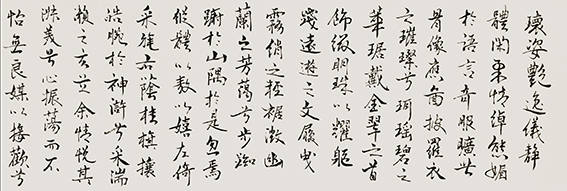 瓌姿艷逸儀靜
體閑柔情綽態媚
於語言奇服曠世
骨像應圖披羅衣
之璀璨兮珥瑤碧之
華琚戴金翠之首
飾綴明珠以耀軀
踐遠遊之文履曳
霧綃之輕裾微幽
蘭之芳藹兮步踟
躕於山隅於是忽焉
縱體以遨以嬉左倚
采旄右蔭桂旗攘
皓腕於神滸兮采湍
瀨之玄芝余情悅其
淑美兮心振蕩而不
怡無良媒以接歡兮